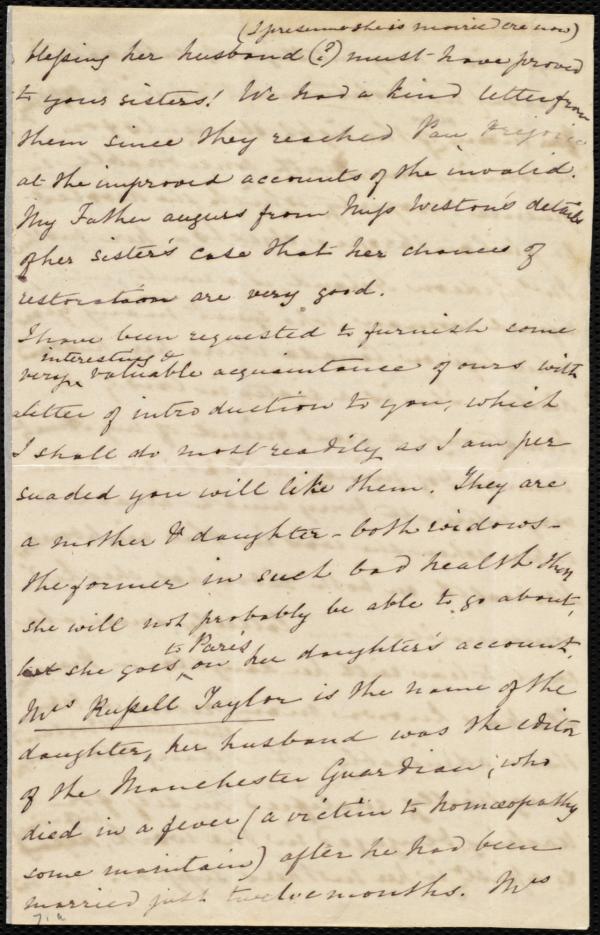 (I presume she is married ere now)
blessing her husband (?) must have proved
to your sisters! We had a kind letter from
them since they reached Pau & rejoice
at the improved accounts of the invalid.
My Father augurs from Miss Weston's details
of her sister's case that her chances of
restoration are very good.
I have been requested to furnish some
interesting &
very valuable acquaintance of ours with
a letter of introduction to you, which
I shall do most readily as I am per
suaded you will like them. They are
a mother & daughter - both widows -
the former in such bad health that
she will not probably be able to go about,
to Paris
but she goes on her daughter's account.
Mrs Russell Taylor is the name of the
daughter, her husband was the editor
of the Manchester Guardian, who
died in a fever (a victim to homœopathy
some maintain) after he had been
married just twelve months. Mrs